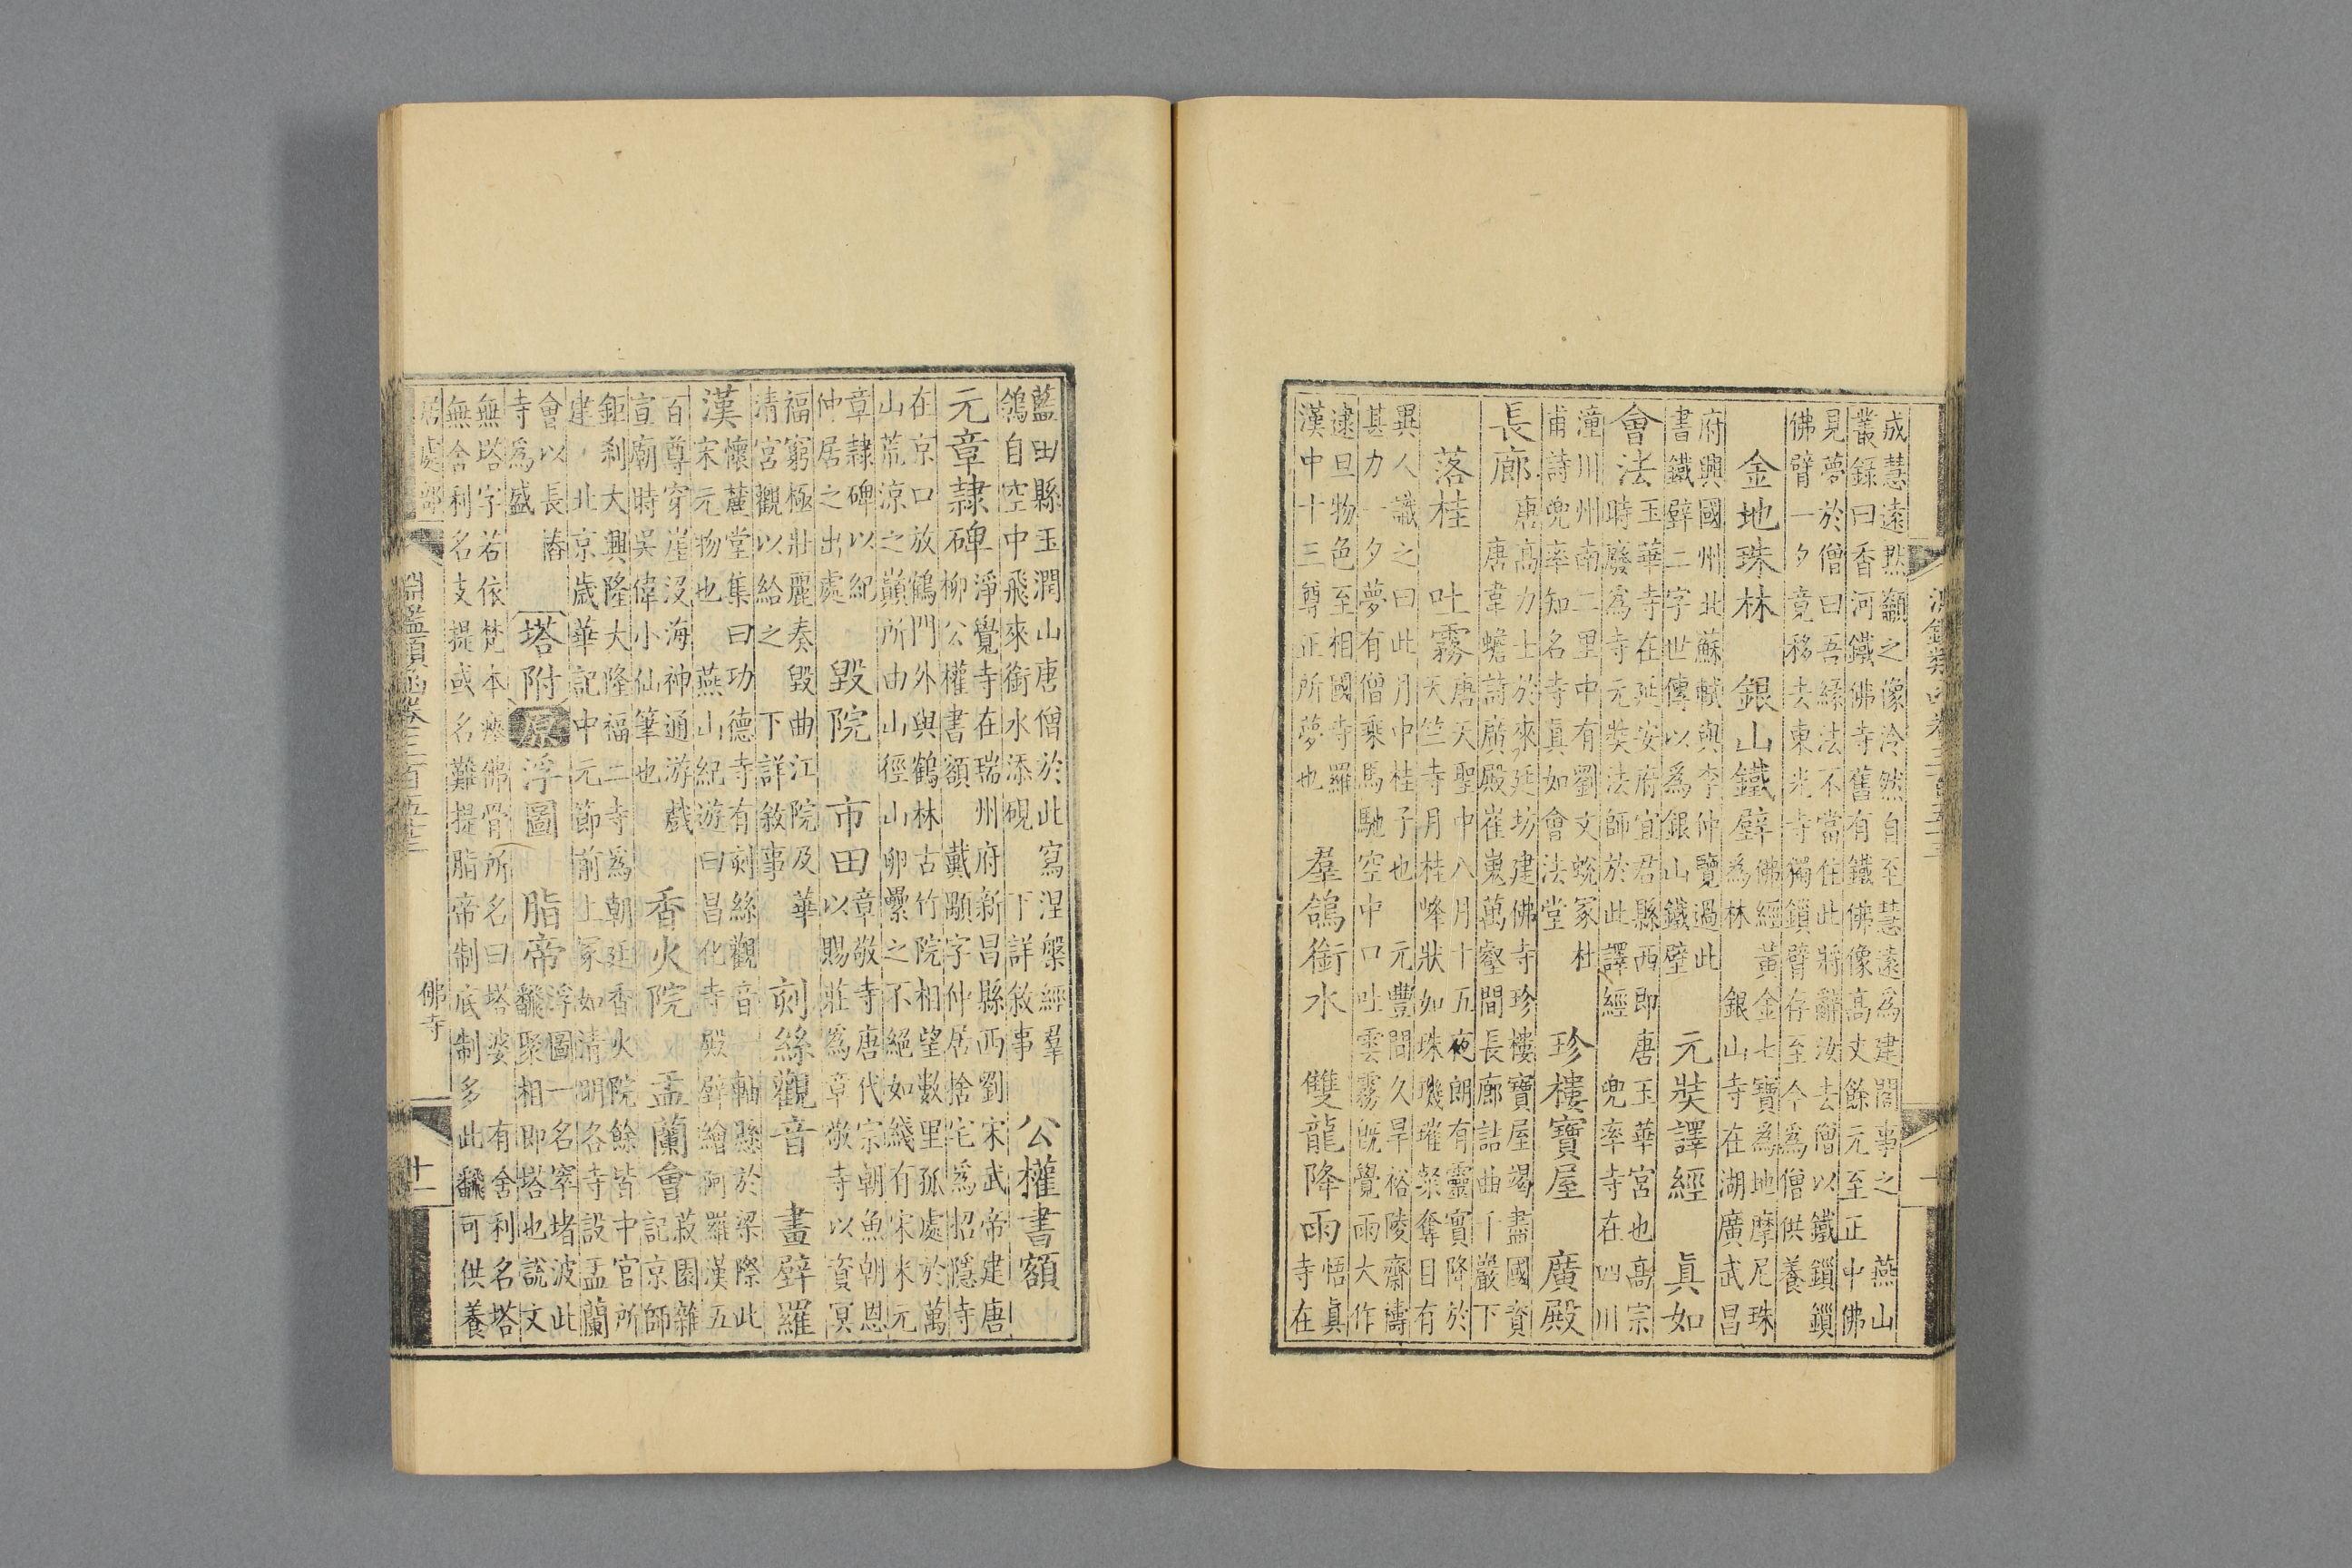 成慧遠默禱之像泠然自至慧遠為建閣事之　燕山
叢錄曰香河鐵佛寺舊有鐵佛像高丈餘元至正中佛
見夢於僧曰吾緣法不當住此將辭汝去僧以鐵鎖鎖
佛臂一夕竟移去東光寺獨鎖臂存至今為僧供養
金地珠林　銀山鐵壁
佛經黃金七寶為地摩尼珠
為林　銀山寺在湖廣武昌
府興國州北蘇軾與李仲覽過此
書鐵壁二字世傳以為銀山鐵壁
元奘譯經　真如
會法
玉華寺在延安府宜君縣西即唐玉華宮也高宗
時廢為寺元奘法師於此譯經　兜率寺在四川
潼川州南二里中有劉文蛻冢杜
甫詩兜率知名寺真如會法堂
珍樓寶屋　廣殿
長廊
唐高力士於來廷坊建佛寺珍樓寶屋竭盡國資
唐韋蟾詩廣殿崔嵬萬壑間長廊詰曲千巖下
落桂　吐霧
唐天聖中八月十五夜朗有靈實降於
天竺寺月桂峰狀如珠璣璀粲奪目有
異人識之曰此月中桂子也　元豐間久旱裕陵齋禱
甚力一夕夢有僧乘馬馳空中口吐雲霧既覺雨大作
逮旦物色至相國寺羅
漢中十三尊正所夢也
羣鴿銜水　雙龍降雨
悟真
寺在
藍田縣玉澗山唐僧於此寫涅槃經羣
鴿自空中飛來銜水添硯　下詳敘事
公權書額
元章隷碑
淨覺寺在瑞州府新昌縣西劉宋武帝建唐
柳公權書額　戴顒字仲居捨宅為招隱寺
在京口放鶴門外與鶴林古竹院相望數里孤處於萬
山荒涼之巔所由山徑山卵纍之不絕如綫有宋米元
章隸碑以紀
仲居之出處
毀院　市田
章敬寺唐代宗朝魚朝恩
以賜莊為章敬寺以資冥
福窮極壯麗奏毀曲江院及華
清宮觀以給之　下詳敘事
刻絲觀音　畫壁羅
漢
懷麓堂集曰功德寺有刻絲觀音一軸懸於梁際此
宋元物也　燕山紀遊曰昌化寺殿壁繪阿羅漢五
百尊穿崖沒海神通游戲
宣廟時吳偉小仙筆也
香火院　盂蘭會
菽園雜
記京師
鉅刹大興隆大隆福二寺為朝廷香火院餘皆中官所
建　北京歲華記中元節前上冢如清明各寺設盂蘭
會以長椿
寺為盛
塔附　原　浮圖　脂帝
浮圖一名窣堵波此
飜聚相即塔也說文
無塔字若依梵本瘞佛骨所名曰塔婆　有舍利名塔
無舍利名支提或名難提脂帝制底制多此飜可供養
居處部
淵鑑類函卷三百五十三
佛寺
十一